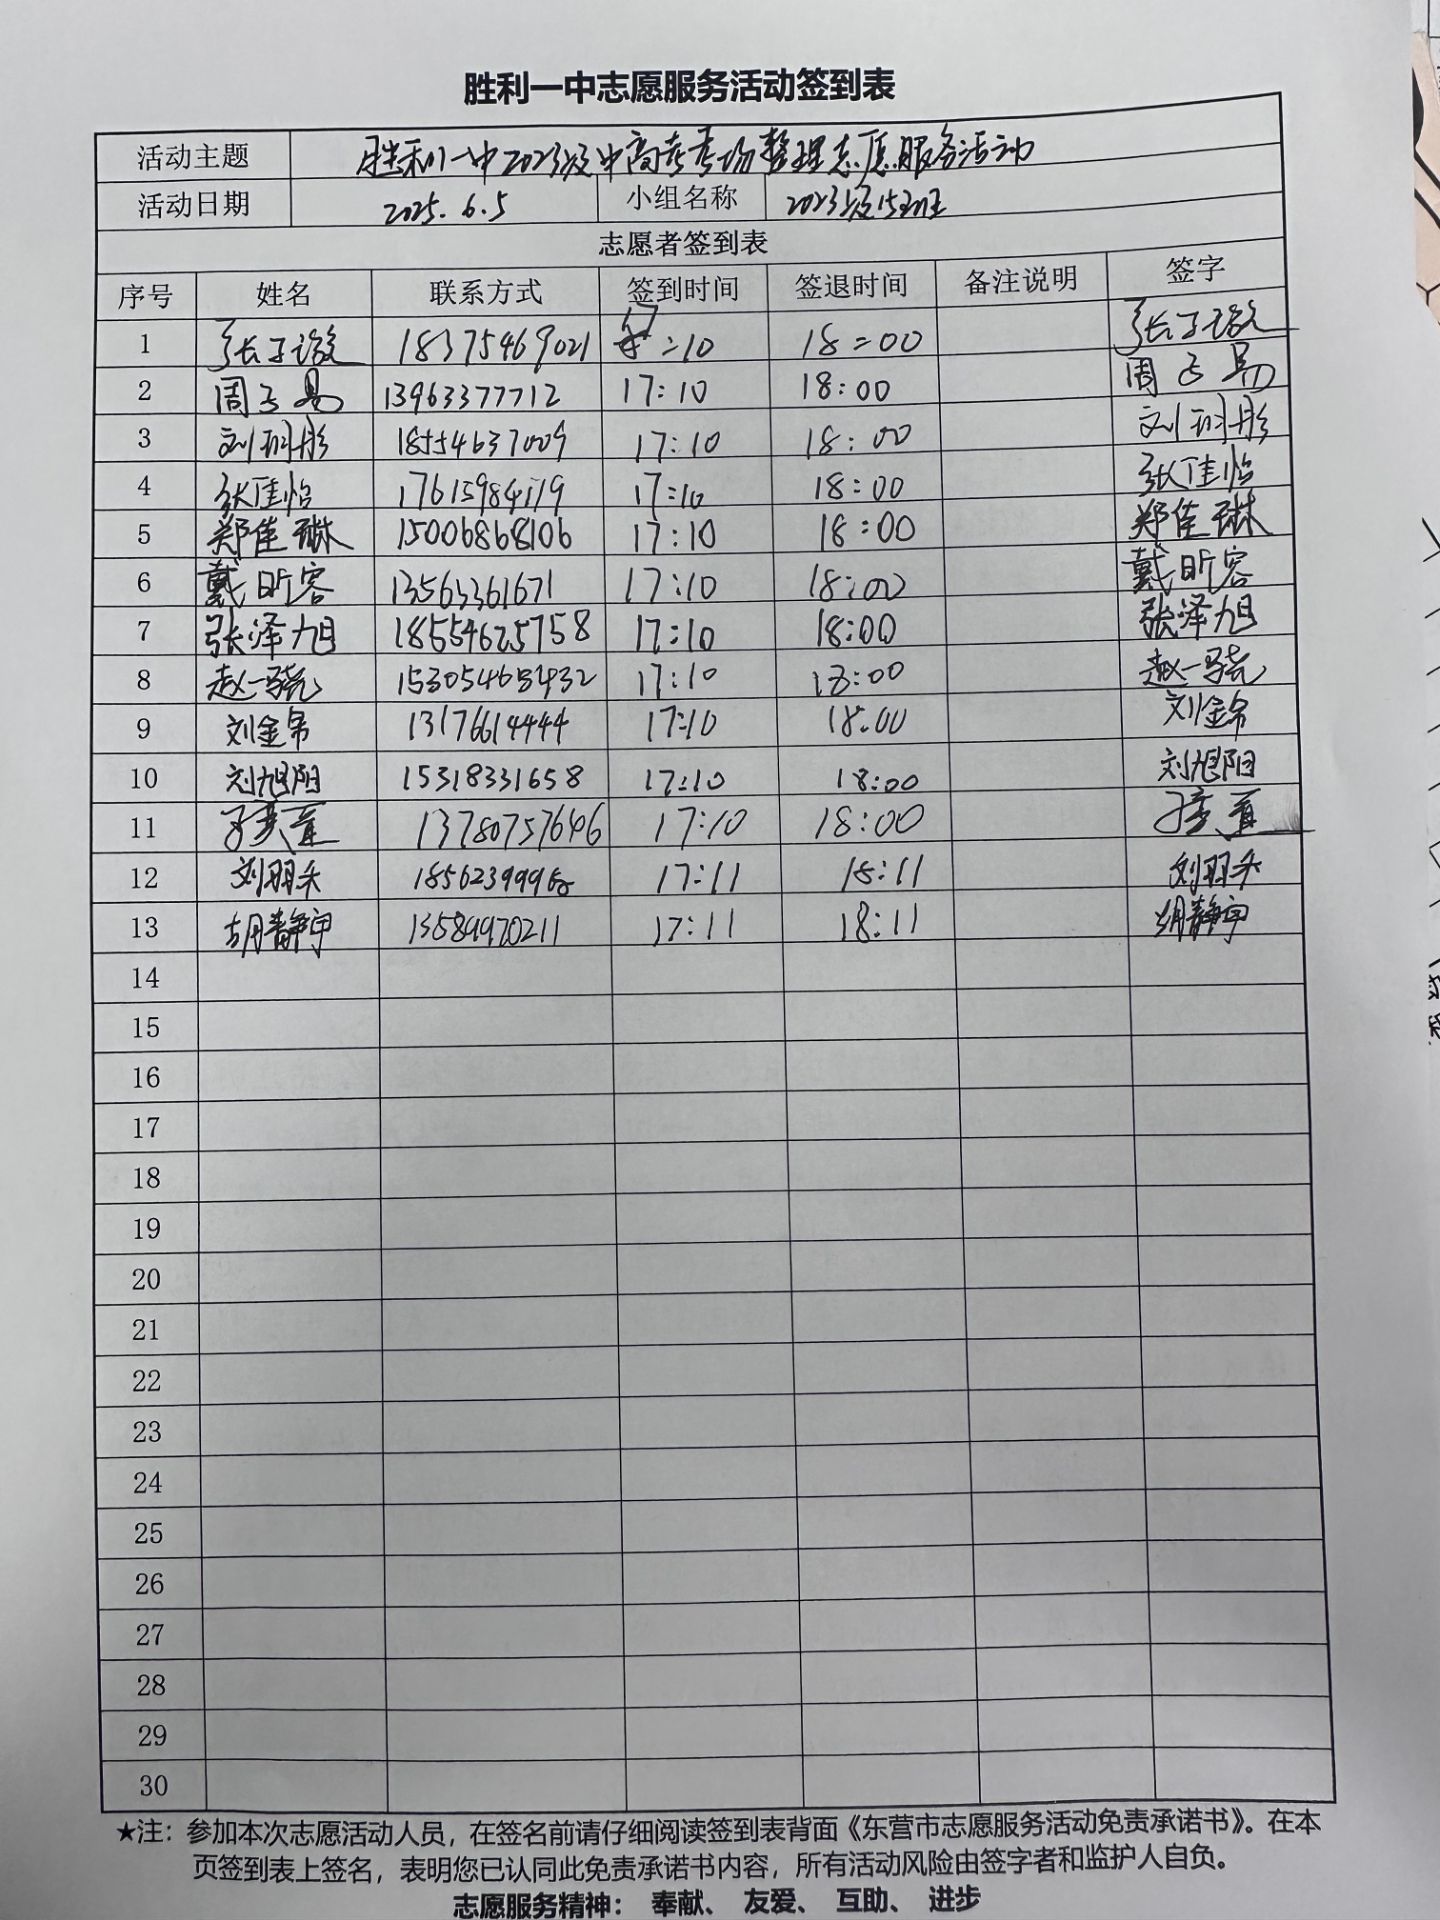 胜利一中志愿服务活动签到表
活动主题 胜利一中2023级中高考考场整理志愿服务活动
活动日期 2025.6.5 小组名称 2023级15班
志愿者签到表
序号 姓名 联系方式 签到时间 签退时间 备注说明 签字
1 18375469021 :10 18:00
2 周子易 13963377712 17:10 18:00 周子易
3 刘珂彤 18554637009 17:10 18:00 刘珂彤
4 张佳怡 17:10 18:00 张佳怡
5 郑佳琳 15006868106 17:10 18:00 郑佳琳
6 戴昕容 13563361671 17:10 18:00 戴昕容
7 张泽旭 18554625758 17:10 18:00 张泽旭
8 赵一骁 17:10 18:00 赵一骁
9 刘金帛 13176614444 17:10 18:00 刘金帛
10 刘旭阳 15318331658 17:10 18:00 刘旭阳
11 13780757646 17:10 18:00
12 刘羽禾 17:11 18:11 刘羽禾
13 胡静宇 13589970211 17:11 18:11 胡静宇
14
15
16
17
18
19
20
21
22
23
24
25
26
27
28
29
30
★注：参加本次志愿活动人员，在签名前请仔细阅读签到表背面《东营市志愿服务活动免责承诺书》。在本
页签到表上签名，表明您已认同此免责承诺书内容，所有活动风险由签字者和监护人自负。
志愿服务精神： 奉献、 友爱、 互助、 进步